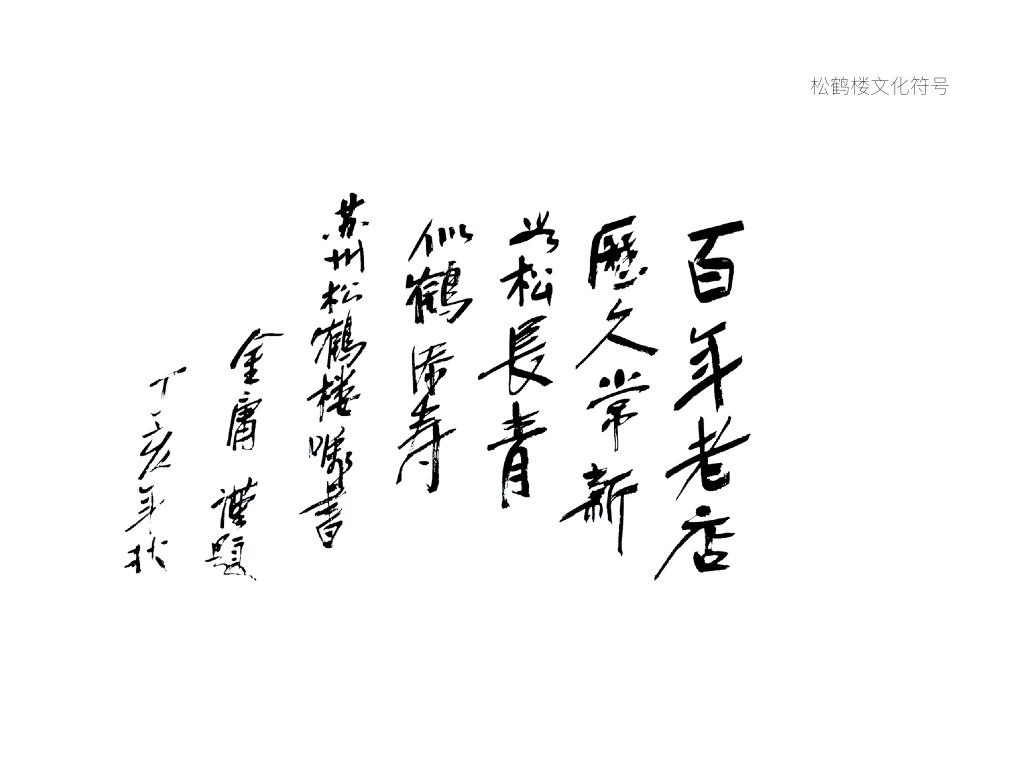 松鹤楼文化符号
百年老店
歷久常新
如松長青
似鶴添寿
苏州松鶴楼嘱書
金庸 謹題
丁亥年秋